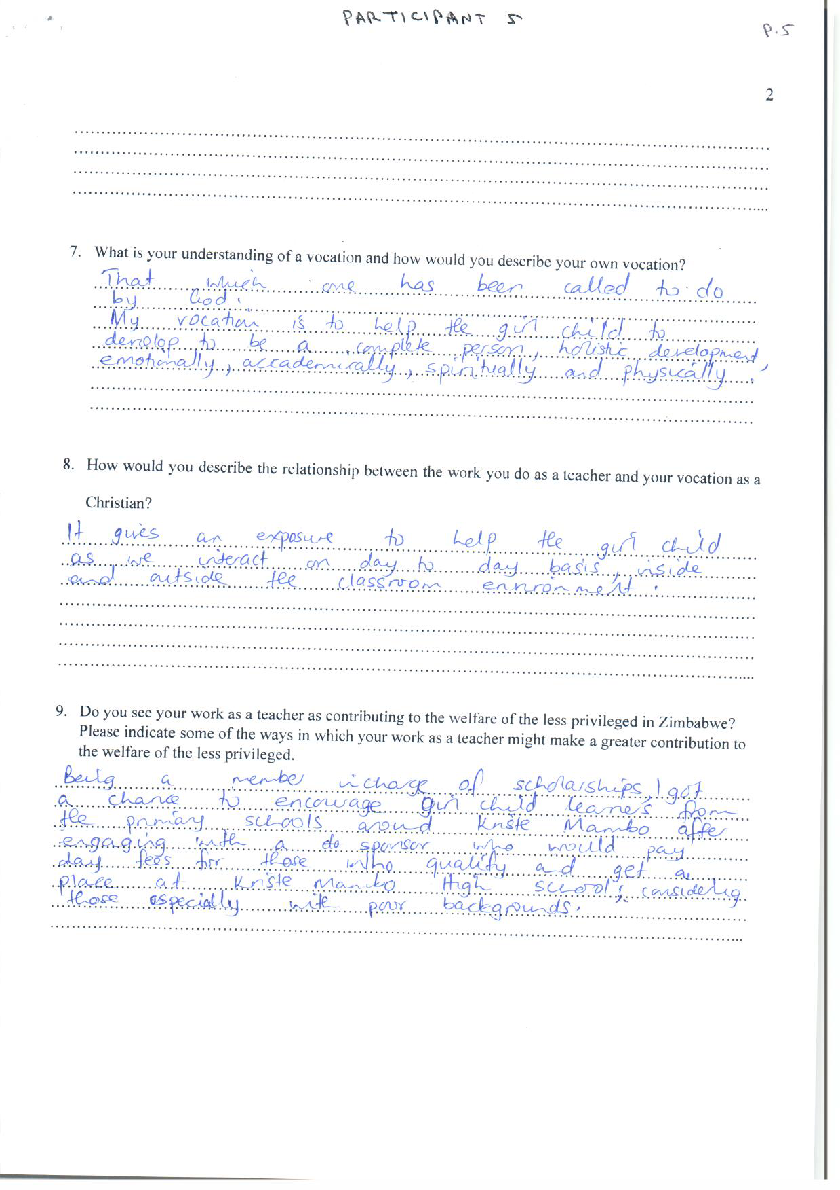 PARTICIPANT 5
P.5
2
7. What is your understanding of a vocation and how would you describe your own vocation?
That which one has been called to do
by God.
My vocation is to help the girl child to
develop to be a complete person, holistic development,
emotionally, accademically, spiritually and physically.
8. How would you describe the relationship between the work you do as a teacher and your vocation as a
Christian?
It gives an exposure to help the girl child
as we interact on day to day basis, inside
and outside the classroom environment.
9. Do you see your work as a teacher as contributing to the welfare of the less privileged in Zimbabwe?
Please indicate some of the ways in which your work as a teacher might make a greater contribution to
the welfare of the less privileged.
Being a member incharge of scholarships, I got
a chance to encourage girl child learners from
the primary schools around Kriste Mambo after
engaging with a do sponsor who would pay
day fees for those who qualify and get a
place at Kriste Mambo High school, considering
those especially with poor backgrounds.